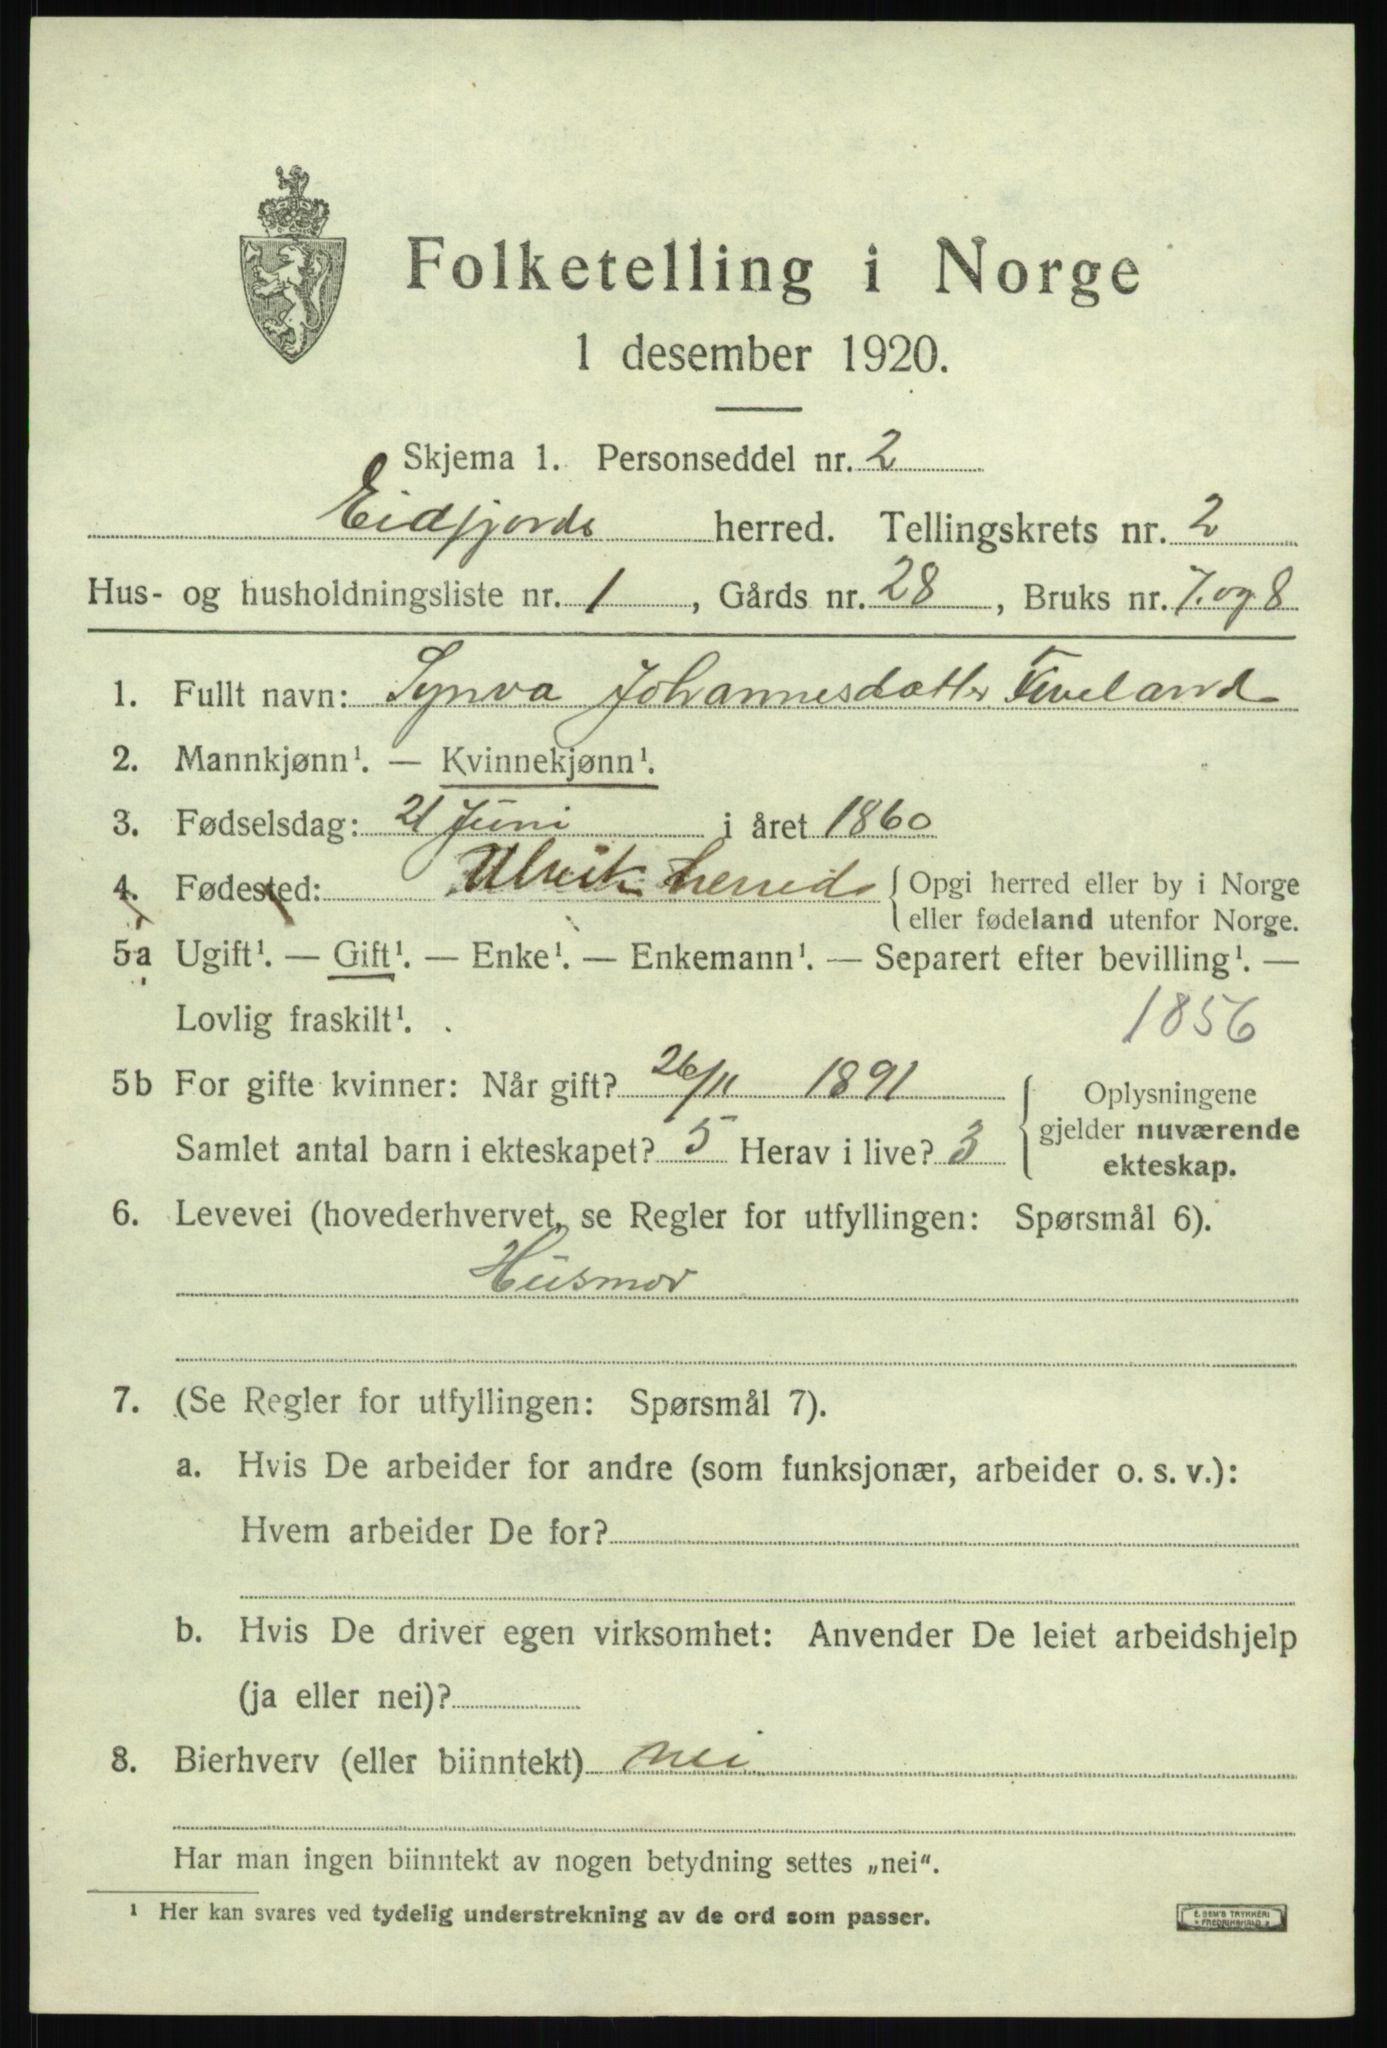 Folketelling i Norge
1 desember 1920.
Skjema 1. Personseddel nr. 2
Eidfjords herred. Tellingskrets nr. 2
Hus- og husholdningsliste nr. 1, Gårds nr. 28, Bruks nr. 7. og 8
1. Fullt navn: Synva Johannesdatter Tveland
2. Mannkjønn¹. — Kvinnekjønn¹.
3. Fødselsdag: 21 Juni i året 1860
4. Fødested: Ulvik herred { Opgi herred eller by i Norge
eller fødeland utenfor Norge.
5a Ugift¹. — Gift¹. — Enke¹. — Enkemann¹. — Separert efter bevilling¹. —
Lovlig fraskilt¹. 1856
5b For gifte kvinner: Når gift? 26/11 1891 { Oplysningene
gjelder nuværende
Samlet antal barn i ekteskapet? 5 Herav i live? 3
ekteskap.
6. Levevei (hovederhvervet, se Regler for utfyllingen: Spørsmål 6).
Husmor
7. (Se Regler for utfyllingen: Spørsmål 7).
a. Hvis De arbeider for andre (som funksjonær, arbeider o. s. v.):
Hvem arbeider De for?
b. Hvis De driver egen virksomhet: Anvender De leiet arbeidshjelp
(ja eller nei)?
8. Bierhverv (eller biinntekt) nei
Har man ingen biinntekt av nogen betydning settes „nei“.
¹ Her kan svares ved tydelig understrekning av de ord som passer.
E. SEM'S TRYKKERI
FREDRIKSHALD